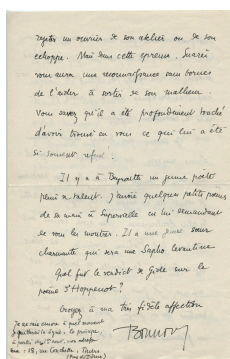 rejeter un ouvrier de son atelier ou de son
échoppe. Mais dans cette épreuve, Suarès
vous aura une reconnaissance sans bornes
de l'aider à sortir de son malheur.
Vous savez qu'il a été profondément touché
d'avoir trouvé en vous ce qui lui a été
si souvent refusé.
Il y a à Beyrouth un jeune poète
plein de talent. J'envoie quelques petits poèmes
de sa main à Supervielle en lui demandant
de vous les montrer. Il a une jeune sœur
charmante qui sera une Sapho levantine
Quel fut le verdict de Gide sur le
poème d'Hoppenot ?
Croyez à ma très fidèle affection
Bounoure
Je ne sais encore à quel moment
je quitterai la Syrie. Le
à partir du 15
18, rue